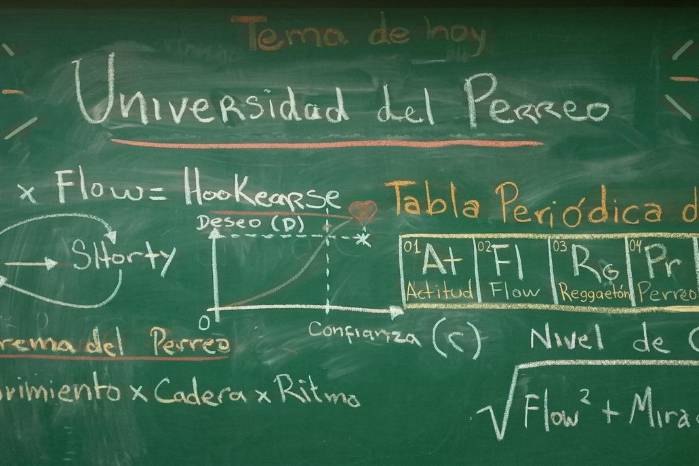 Tema de hoy
Universidad del Perreo
x Flow = Hookearse
Tabla Periódica d
Deseo (D)
Shorty
01 At Actitud
02 Fl Flow
03 Rg Reggaetón
04 Pr Perreo
0
Confianza (C)
rema del Perreo
rimiento x Cadera x Ritmo
Nivel de C
√Flow² + Mira